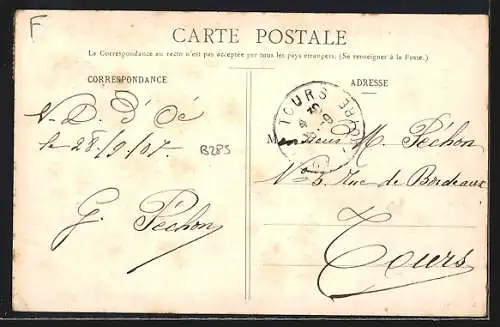 F
CARTE POSTALE
La Correspondance au recto n'est pas acceptée par tous les pays étrangers. (Se renseigner à la Poste.)
CORRESPONDANCE
N. D. d'Oé
le 28/9/07.
B285
G. Péchon
ADRESSE
TOURS
Monsieur M. Péchon
No 5, Rue de Bordeaux
Tours